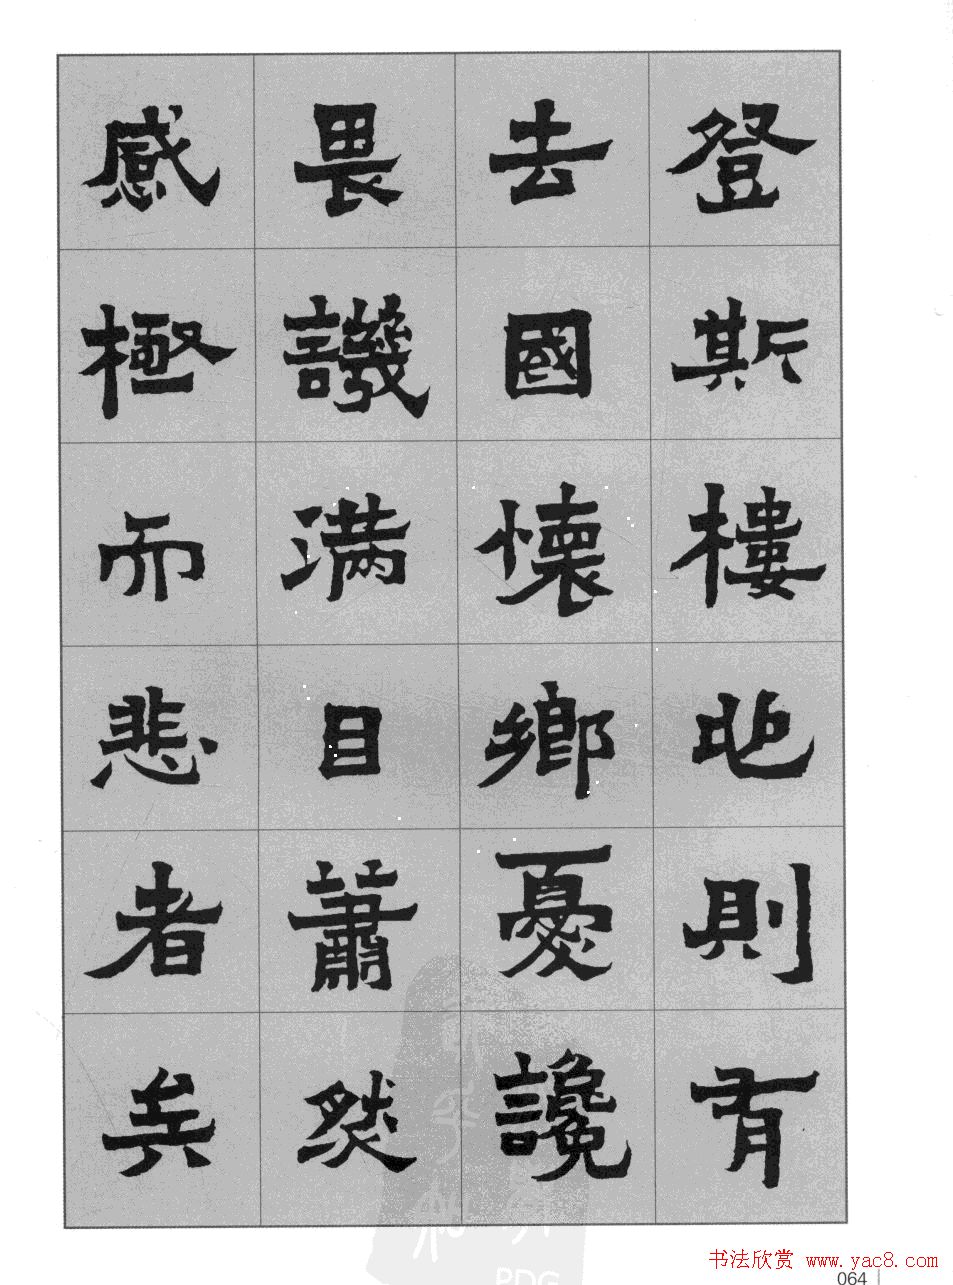 登斯樓也則有
去國懷鄉憂讒
畏譏滿目蕭然
感極而悲者矣
书法欣赏 www.yac8.com
064
PDG